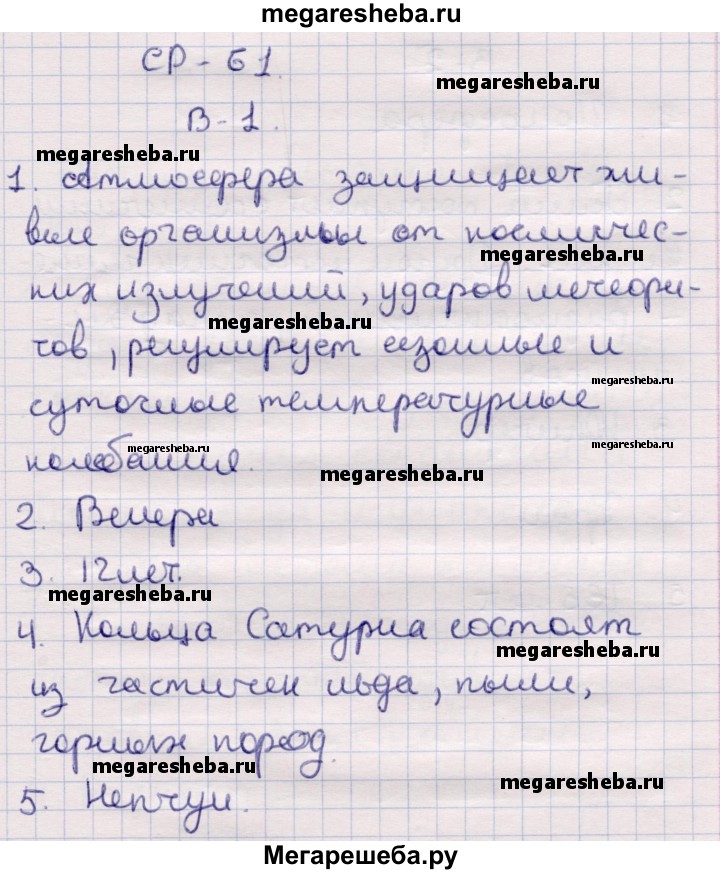 megaresheba.ru
СР - 61.
megaresheba.ru
В - 1.
megaresheba.ru
1. Атмосфера защищает жи-
вые организмы от космичес-
megaresheba.ru
ких излучений, ударов метеори-
megaresheba.ru
тов, регулирует сезонные и
megaresheba.ru
суточные температурные
megaresheba.ru
megaresheba.ru
колебания.
megaresheba.ru
2. Венера
3. 12 лет.
megaresheba.ru
4. Кольца Сатурна состоят
megaresheba.ru
из частичек льда, пыли,
горных пород.
megaresheba.ru
megaresheba.ru
5. Нептун.
Мегарешеба.ру